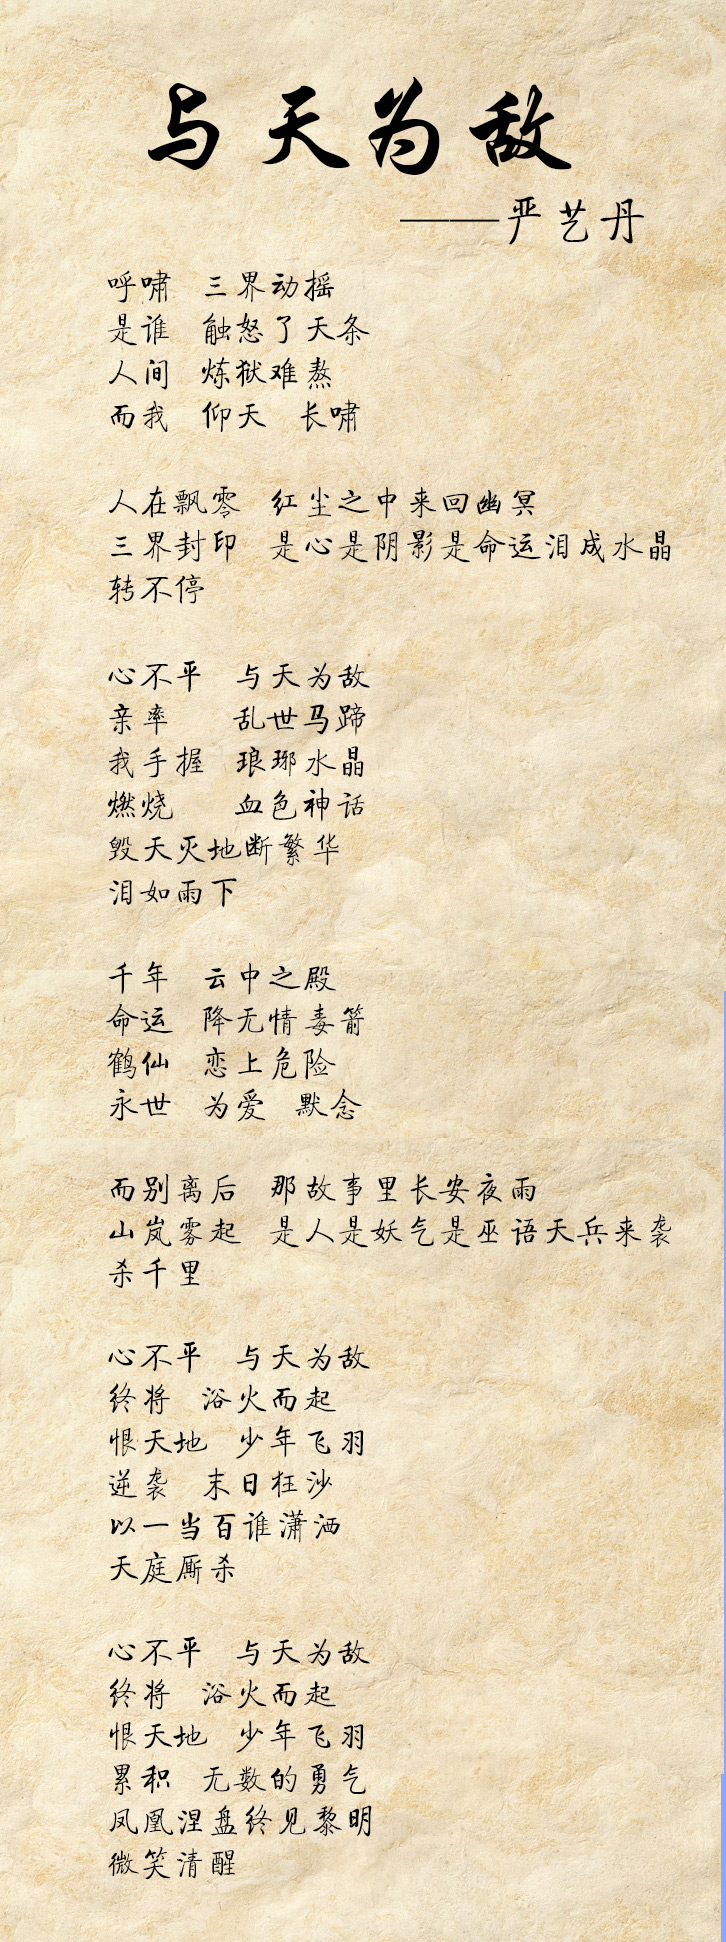 与天为敌
——严艺丹
呼啸 三界动摇
是谁 触怒了天条
人间 炼狱难熬
而我 仰天 长啸
人在飘零 红尘之中来回幽冥
三界封印 是心是阴影是命运泪成水晶
转不停
心不平 与天为敌
亲率 乱世马蹄
我手握 琅琊水晶
燃烧 血色神话
毁天灭地断繁华
泪如雨下
千年 云中之殿
命运 降无情毒箭
鹤仙 恋上危险
永世 为爱 默念
而别离后 那故事里长安夜雨
山岚雾起 是人是妖气是巫语天兵来袭
杀千里
心不平 与天为敌
终将 浴火而起
恨天地 少年飞羽
逆袭 末日狂沙
以一当百谁潇洒
天庭厮杀
心不平 与天为敌
终将 浴火而起
恨天地 少年飞羽
累积 无数的勇气
凤凰涅盘终见黎明
微笑清醒